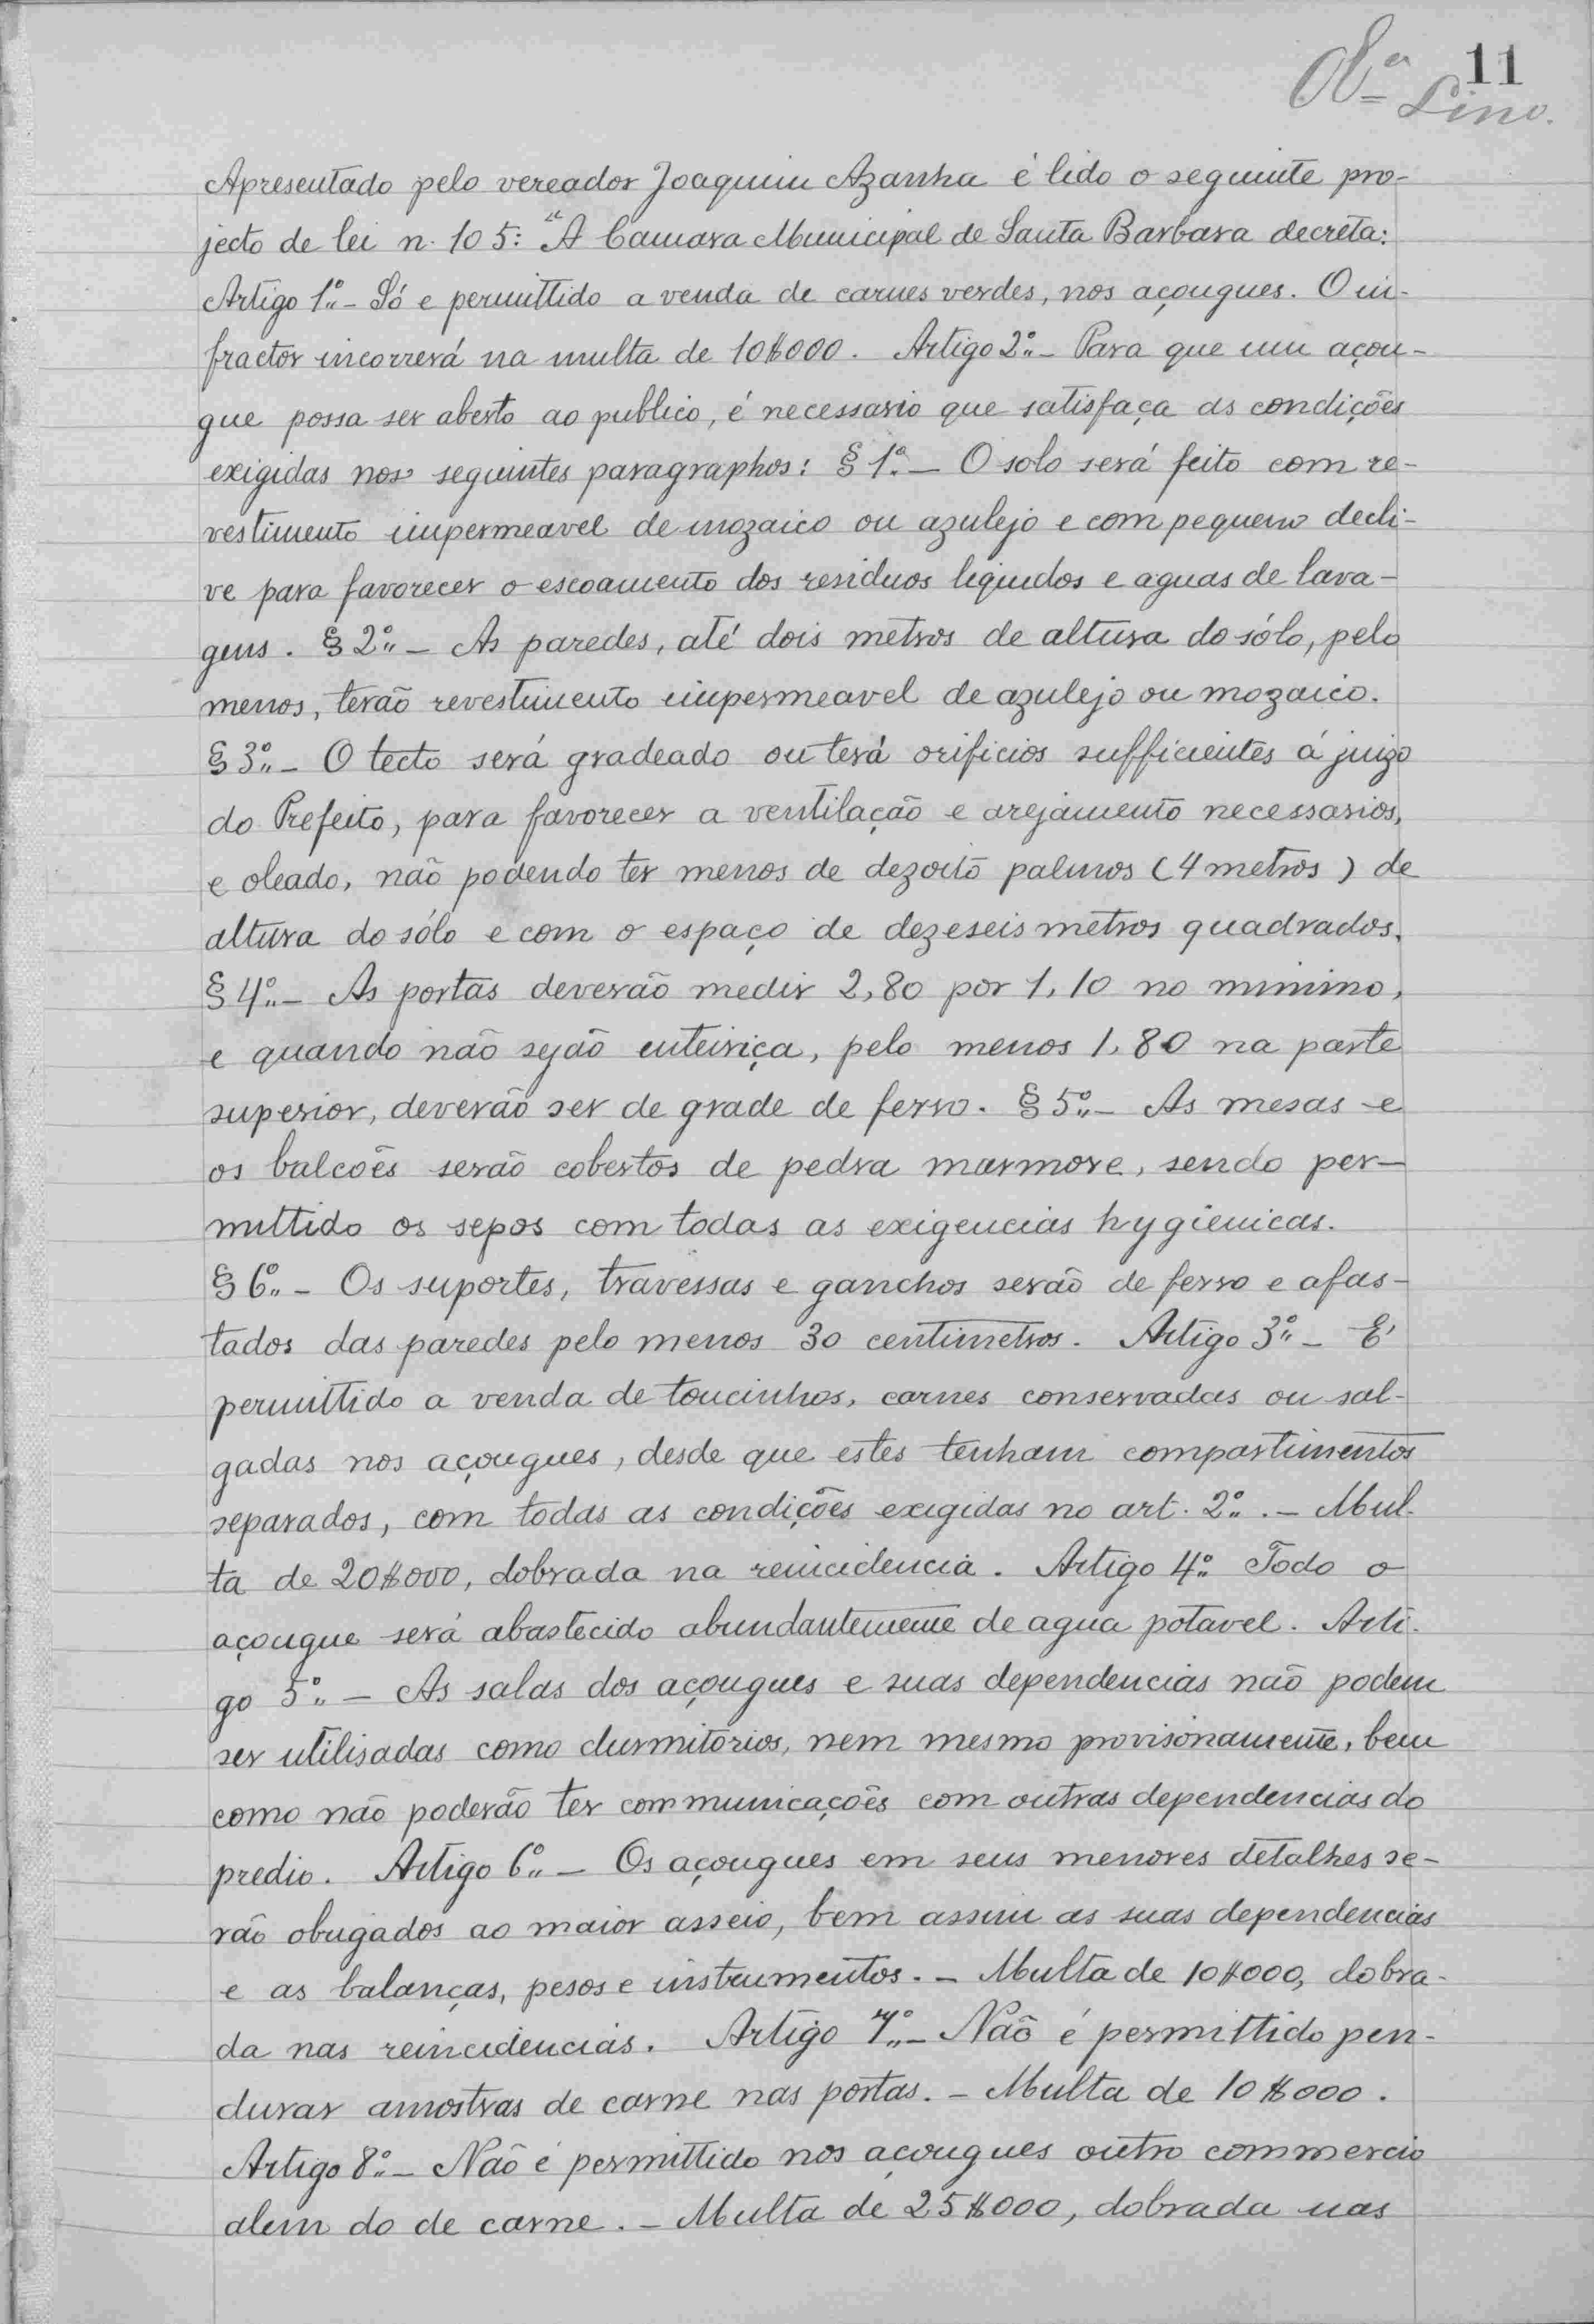 11
Lino.
Apresentado pelo vereador Joaquim Azanha é lido o seguinte pro-
jecto de lei n. 105: "A Camara Municipal de Santa Barbara decreta:
Artigo 1º - Só e permittido a venda de carnes verdes, nos açougues. O in-
fractor incorrerá na multa de 10$000. Artigo 2º - Para que um açou-
gue possa ser aberto ao publico, é necessario que satisfaça as condições
exigidas nos seguintes paragraphos: § 1º - O solo será feito com re-
vestimento impermeavel de mozaico ou azulejo e com pequeno decli-
ve para favorecer o escoamento dos residuos liquidos e aguas de lava-
gens. § 2º - As paredes, até dois metros de altura do sólo, pelo
menos, terão revestimento impermeavel de azulejo ou mozaico.
§ 3º - O tecto será gradeado ou terá orificios sufficientes á juizo
do Prefeito, para favorecer a ventilação e arejamento necessarios,
e oleado, não podendo ter menos de dezoito palmos (4 metros) de
altura do sólo e com o espaço de dezeseis metros quadrados.
§ 4º - As portas deverão medir 2,80 por 1,10 no minimo,
e quando não sejão enteiriça, pelo menos 1,80 na parte
superior, deverão ser de grade de ferro. § 5º - As mesas e
os balcoẽs serão cobertos de pedra marmore, sendo per-
mittido os sepos com todas as exigencias hygienicas.
§ 6º - Os suportes, travessas e ganchos serão de ferro e afas-
tados das paredes pelo menos 30 centimetros. Artigo 3º - E'
permittido a venda de toucinhos, carnes conservadas ou sal-
gadas nos açougues, desde que estes tenham compartimentos
separados, com todas as condições exigidas no art. 2º. - Mul-
ta de 20$000, dobrada na reincidencia. Artigo 4º Todo o
açougue será abastecido abundantemente de agua potavel. Arti-
go 5º - As salas dos açougues e suas dependencias não podem
ser utilisadas como durmitorios, nem mesmo provisoriamente, bem
como não poderão ter communicações com outras dependencias do
predio. Artigo 6º - Os açougues em seus menores detalhes se-
rão obrigados ao maior asseio, bem assim as suas dependencias
e as balanças, pesos e instrumentos. - Multa de 10$000, dobra-
da nas reincidencias. Artigo 7º - Não é permittido pen-
durar amostras de carne nas portas. - Multa de 10$000.
Artigo 8º - Não é permittido nos açougues outro commercio
alem do de carne. - Multa de 25$000, dobrada nas